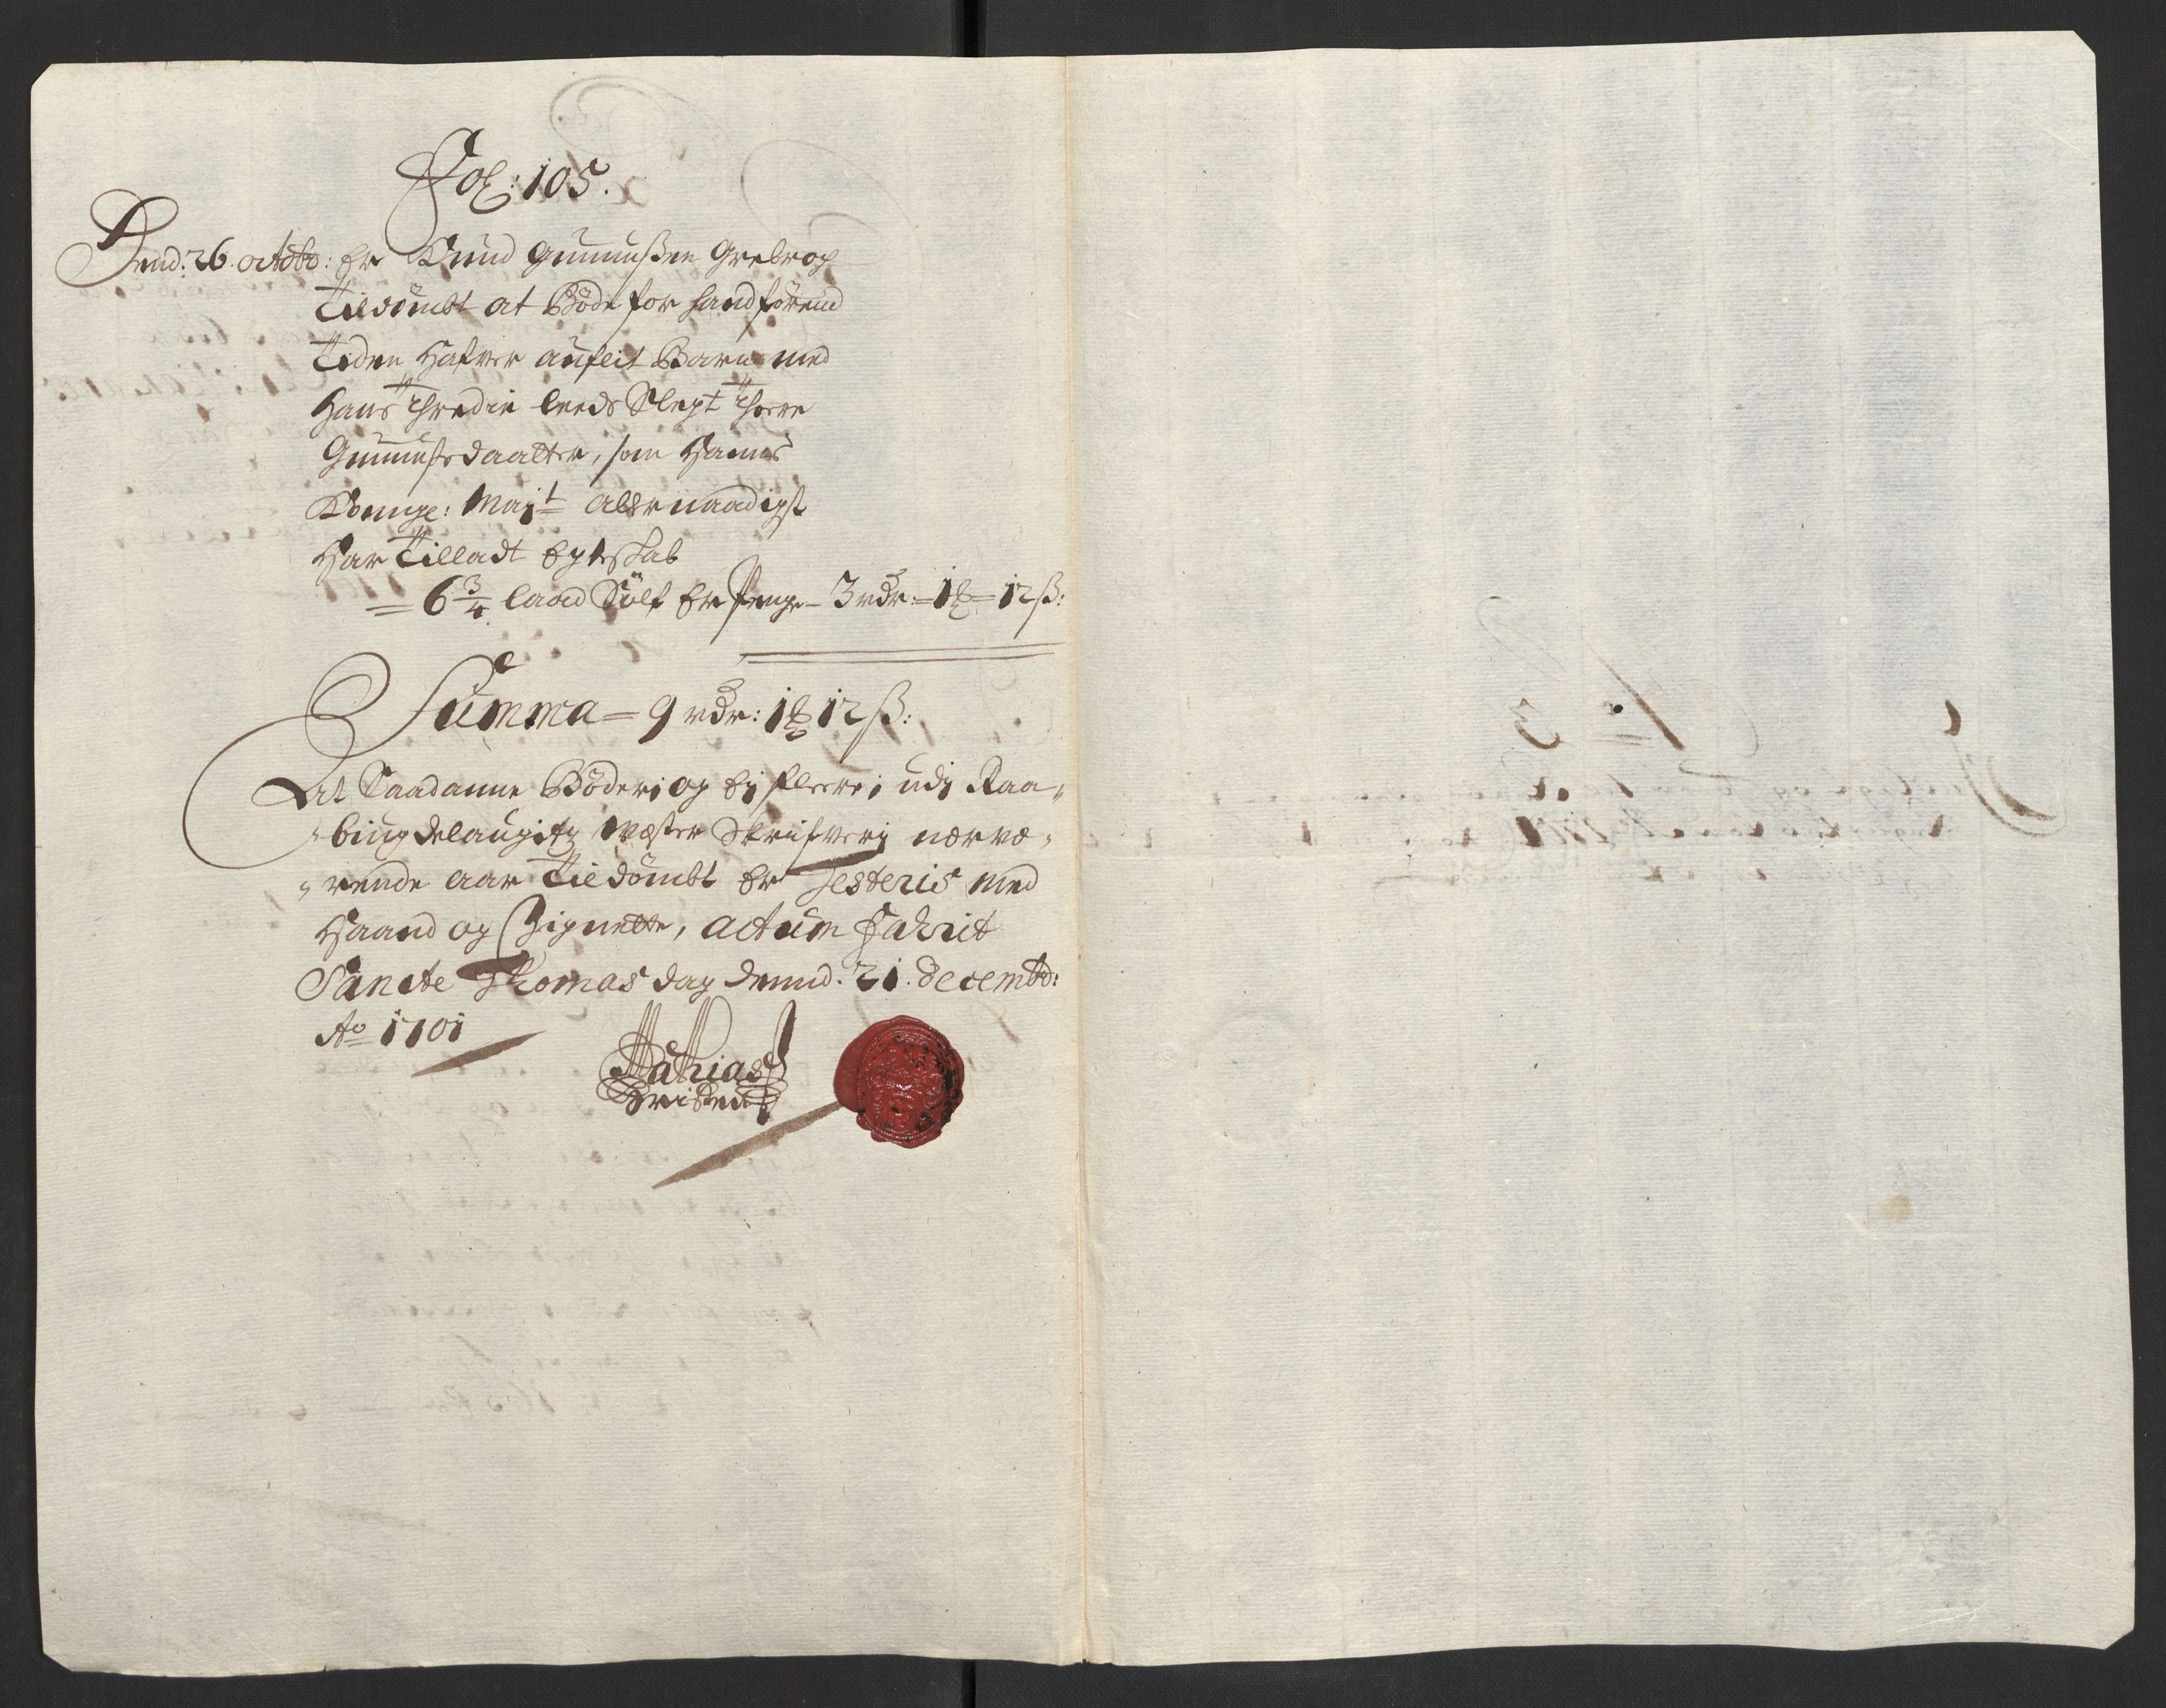 Fol: 105.
Dend: 26. octobr: Er Knud Gunnußen Grebrog
Tildömbt at Böde for hand förend
Tiden Hafver aufleit Barn med
Hans Thredie leeds Slegt Thore
Gunnuſsdaatter, som Hanns
Konnge: Mayt allernaadigst
Har Tilladt Egteskab
= 6¾ laad Sölf Er Penge - 3 rdr: = 1 ℔ = 12 ß:
Summa = 9 rdr: 1 ℔ 12 ß:
At Saadanne Böder; og Ej fleere; udj Raa-
bingdelaugitz Wæster Skrifverj nærvæ-
rende aar Tildömbt Er Testeris med
Haand og Zignette, actum
Sancte Thomas dag dennd. 21. Decembr:
Ao 1701
Mathias